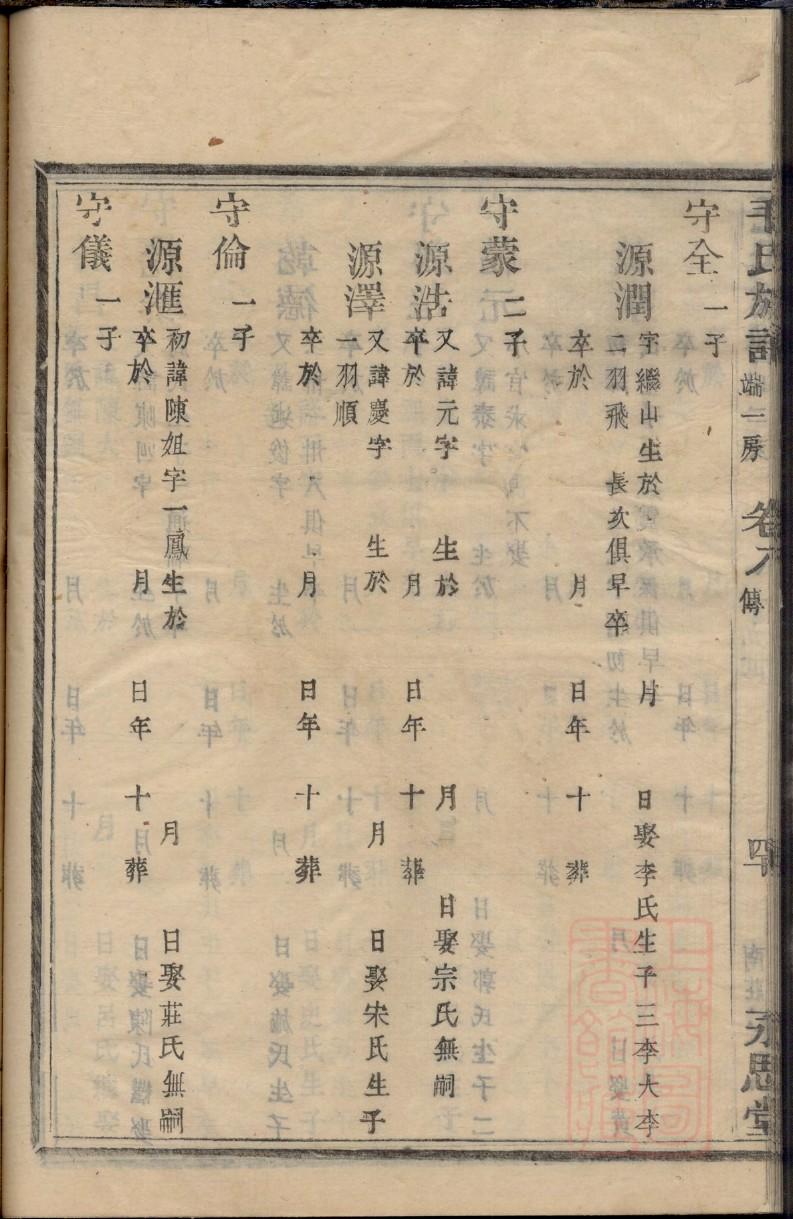 毛氏族譜 端一房 卷八 傳 四 南莊 永思堂
守全 一子
源潤 字繼山生於 月 日娶李氏生子三李大李
二羽飛 長次俱早卒
卒於 月 日年 十 葬
守蒙 二子
源浩 又諱元字 生於 月 日娶宗氏無嗣
卒於 月 日年 十 葬
源澤 又諱慶字 生於 月 日娶宋氏生子
一羽順
卒於 月 日年 十 葬
守倫 一子
源滙 初諱陳姐字一鳳生於 月 日娶莊氏無嗣
卒於 月 日年 十 葬
守儀 一子